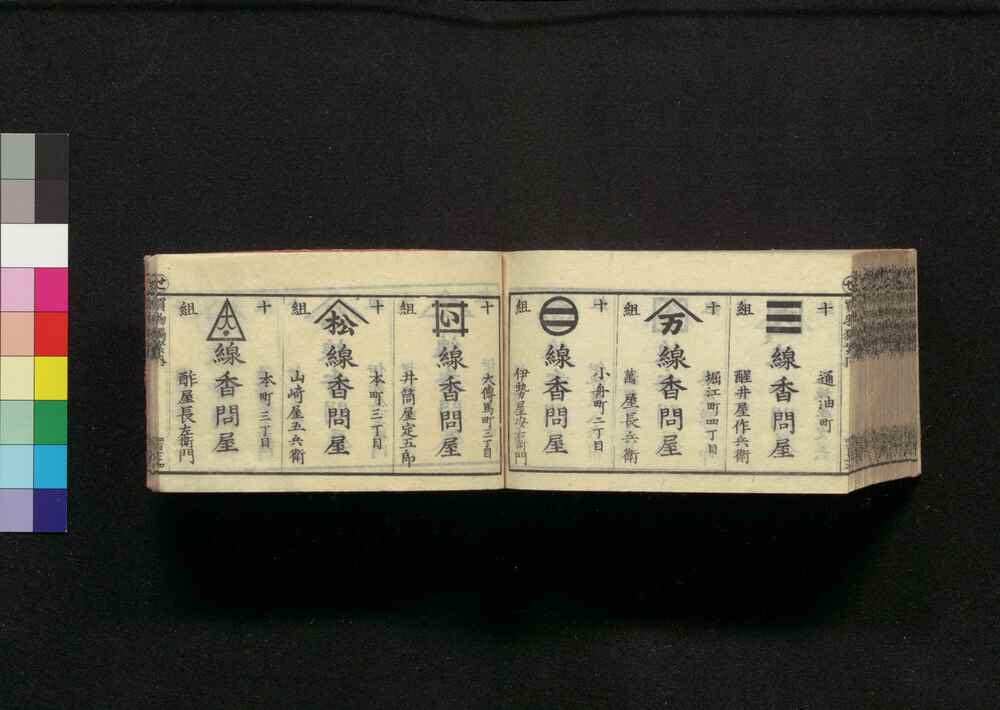 十組
通油町
線香問屋
醒井屋作兵衛
十組
堀江町四丁目
万
線香問屋
萬屋長兵衛
十組
小舟町二丁目
線香問屋
伊勢屋安右衛門
十組
大傳馬町三丁目
い
線香問屋
井筒屋定五郎
十組
本町三丁目
松
線香問屋
山崎屋五兵衛
十組
本町三丁目
線香問屋
酢屋長左衛門